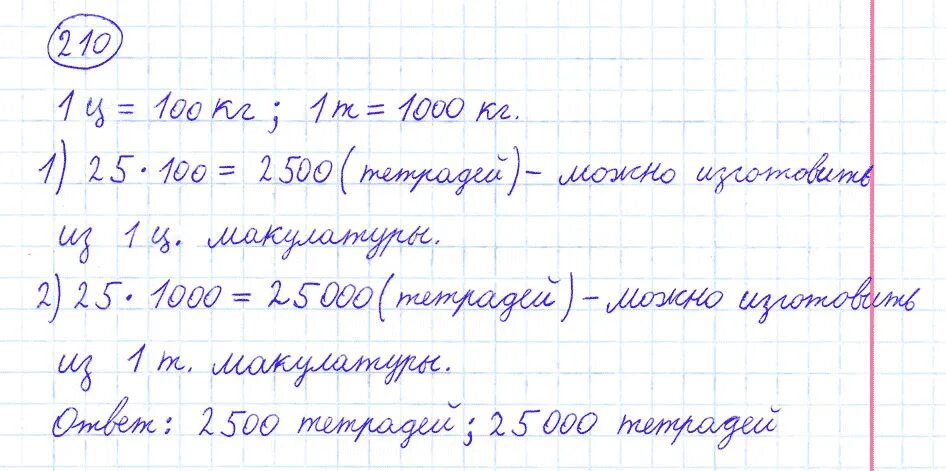 210
1 ц = 100 кг ; 1 т = 1000 кг.
1) 25 · 100 = 2500 (тетрадей) – можно изготовить
из 1 ц. макулатуры.
2) 25 · 1000 = 25000 (тетрадей) – можно изготовить
из 1 т. макулатуры.
Ответ: 2500 тетрадей ; 25000 тетрадей